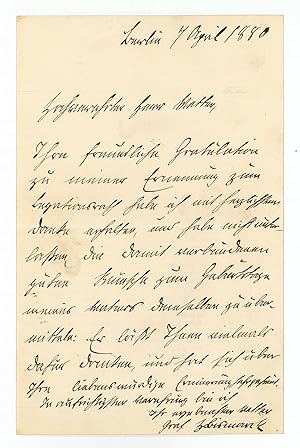 Berlin 7 April 1880
Hochverehrter Herr Mettler,
Ihre freundliche Gratulation
zu meiner Ernennung zum
Legationsrath habe ich mit herzlichem
Danke erhalten, und habe nicht unter-
lassen die damit verbundenen
guten Wünsche zum Geburtstage
meines Vaters demselben zu über-
mitteln: Er läßt Ihnen vielmals
dafür danken, und hat sich über
Ihre liebenswürdige Erinnerung sehr gefreut.
In aufrichtigster Verehrung bin ich
Ihr ergebenster
Graf Bismarck